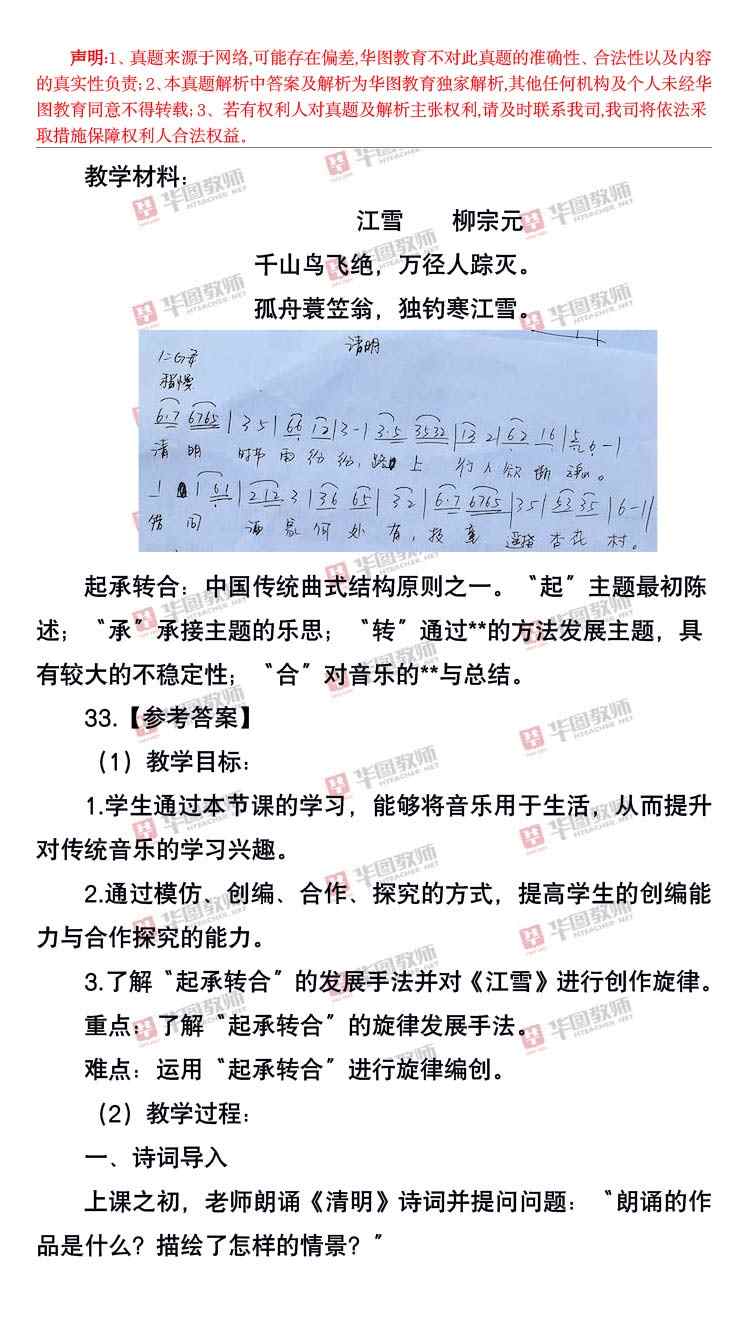 声明:1、真题来源于网络,可能存在偏差,华图教育不对此真题的准确性、合法性以及内容
的真实性负责;2、本真题解析中答案及解析为华图教育独家解析,其他任何机构及个人未经华
图教育同意不得转载;3、若有权利人对真题及解析主张权利,请及时联系我司,我司将依法采
取措施保障权利人合法权益。
教学材料：
江雪 柳宗元
千山鸟飞绝，万径人踪灭。
孤舟蓑笠翁，独钓寒江雪。
清明
1=G
稍慢
6·7 6765 | 3 5 | 66 12 | 3 - | 3·5 3532 | 13 2 | 62 16 | 5 6 - |
清 明 时节 雨 纷 纷，路 上 行 人 欲 断 魂。
1 1 61 | 212 3 | 36 65 | 32 | 6·7 6765 | 35 | 53 35 | 6 - ||
借 问 酒 家 何 处 有，牧 童 遥指 杏 花 村。
起承转合：中国传统曲式结构原则之一。“起”主题最初陈
述；“承”承接主题的乐思；“转”通过**的方法发展主题，具
有较大的不稳定性；“合”对音乐的**与总结。
33.【参考答案】
（1）教学目标：
1.学生通过本节课的学习，能够将音乐用于生活，从而提升
对传统音乐的学习兴趣。
2.通过模仿、创编、合作、探究的方式，提高学生的创编能
力与合作探究的能力。
3.了解“起承转合”的发展手法并对《江雪》进行创作旋律。
重点：了解“起承转合”的旋律发展手法。
难点：运用“起承转合”进行旋律编创。
（2）教学过程：
一、诗词导入
上课之初，老师朗诵《清明》诗词并提问问题：“朗诵的作
品是什么？描绘了怎样的情景？”
华图教师
HTEACHER.NET